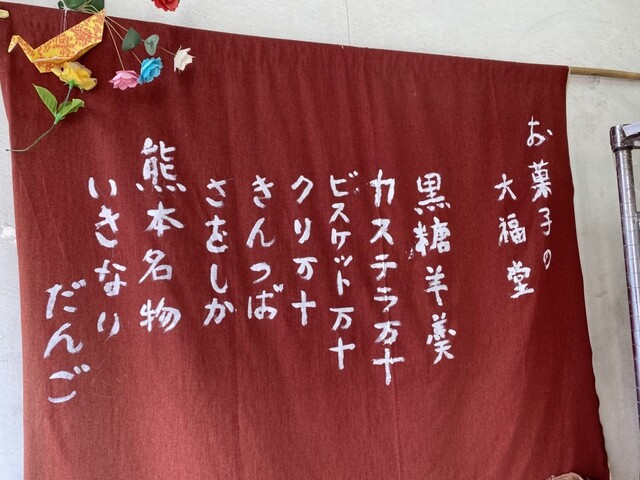 お菓子の
大福堂
黒糖羊羹
カステラ万十
ビスケット万十
クリ万十
きんつば
さをしか
熊本名物
いきなり
だんご